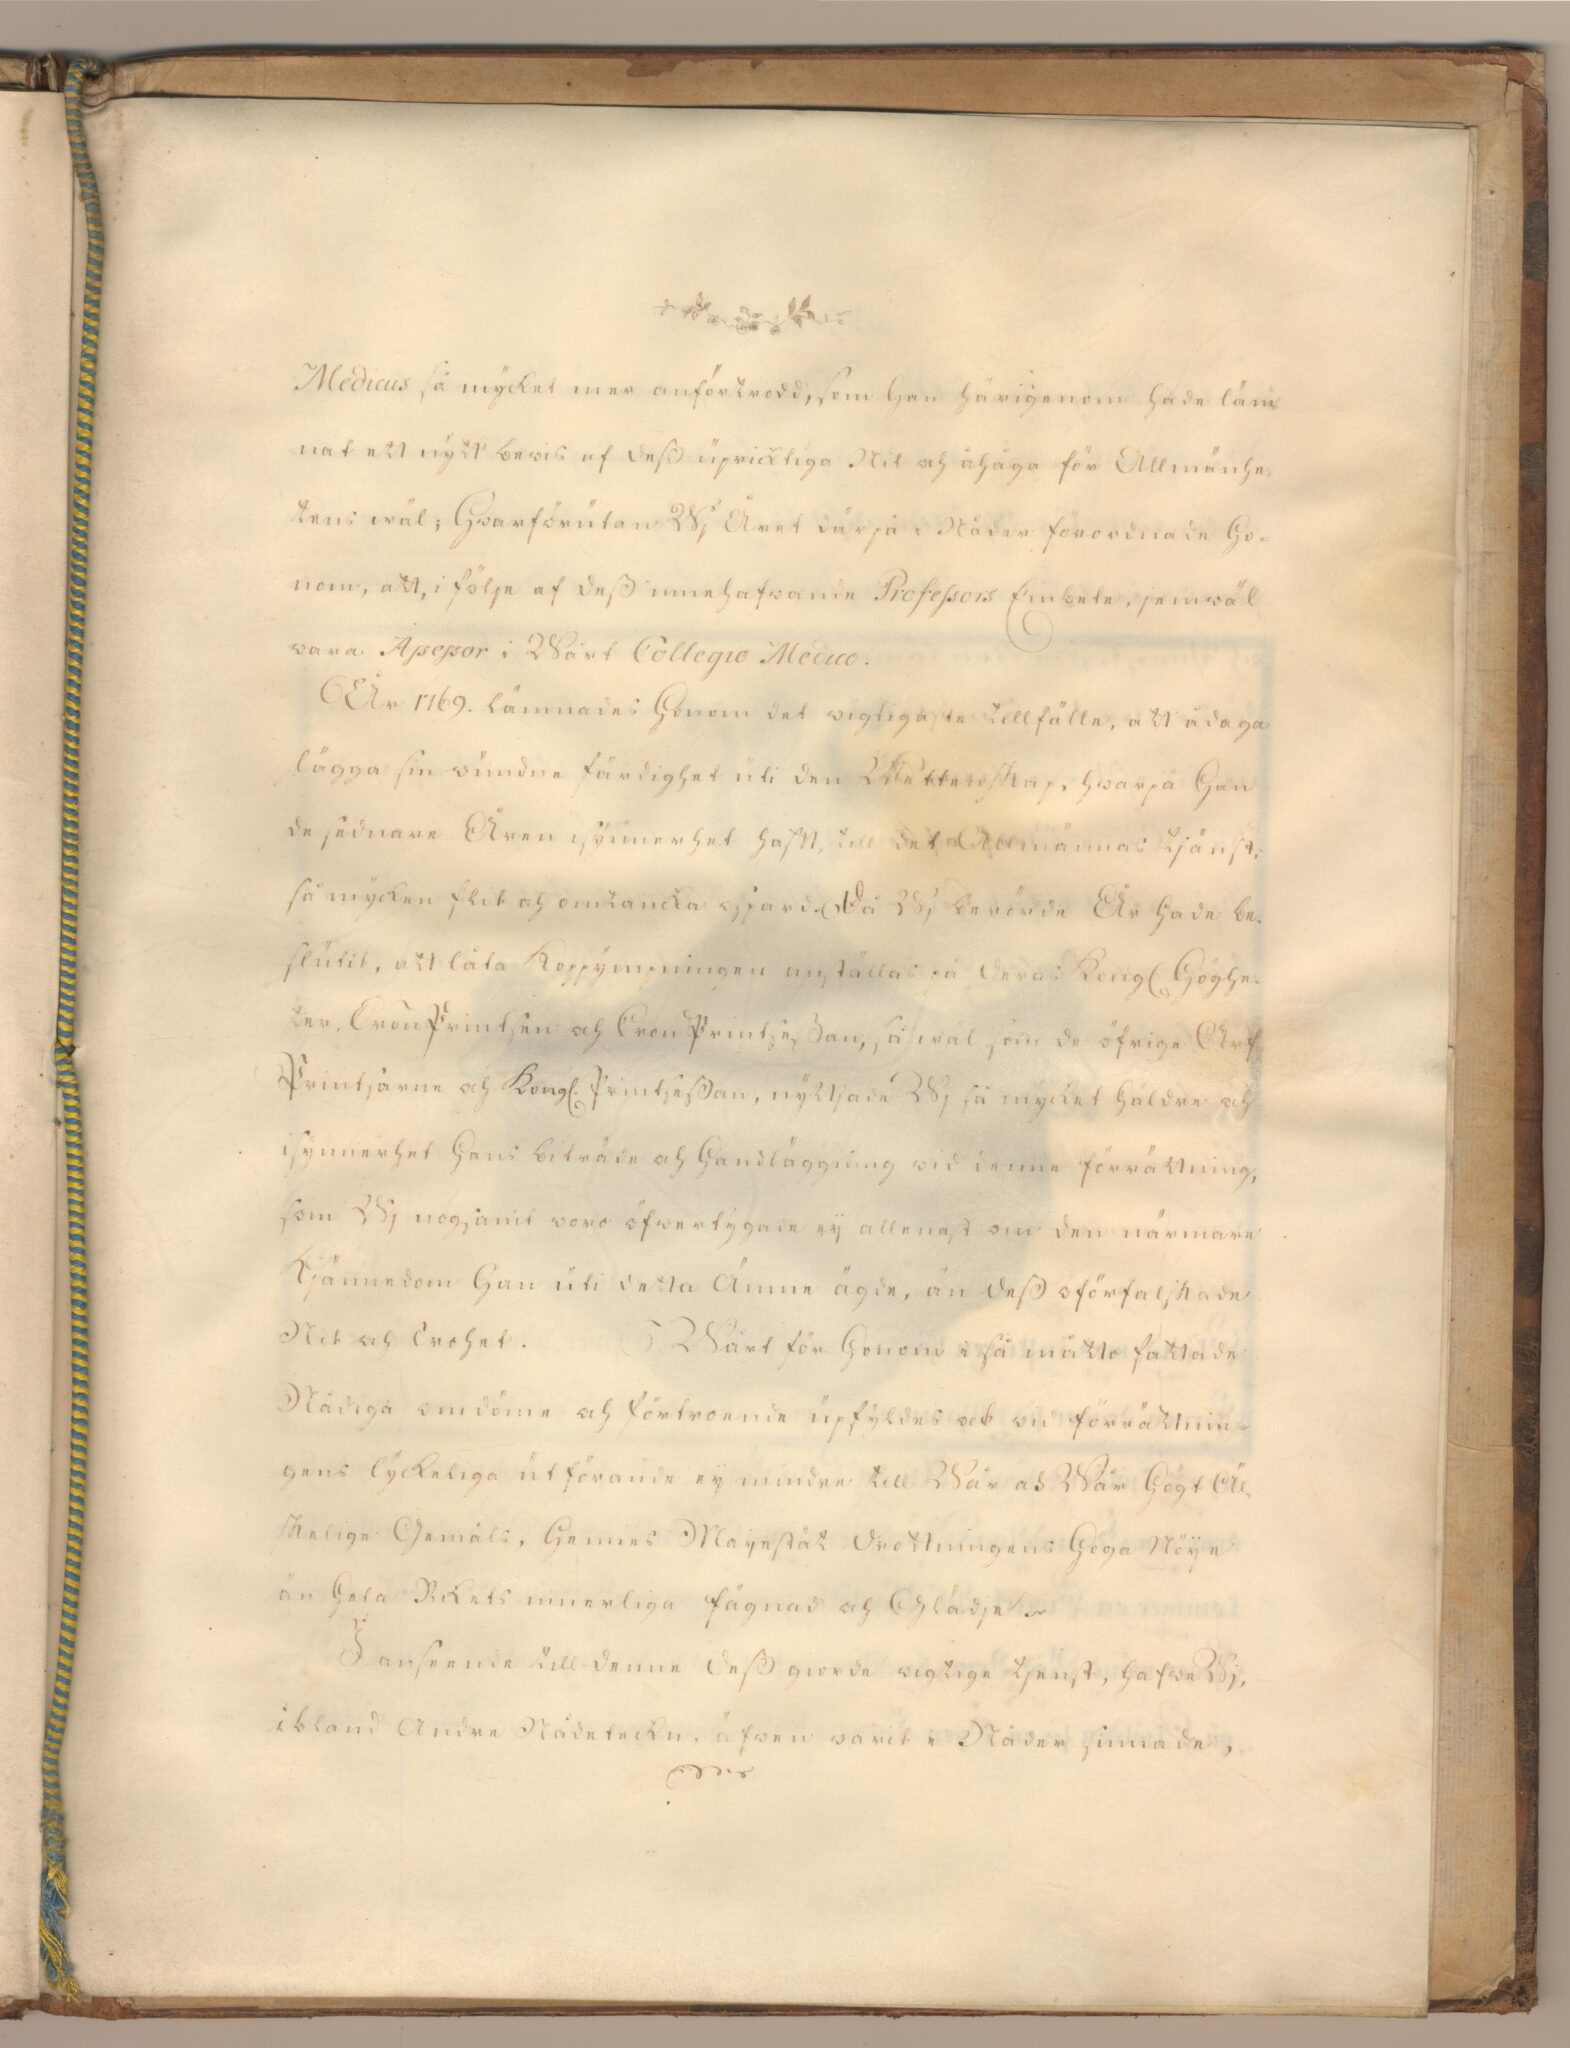 Medicus så mycket mer anförtrodd, som Han härigenom hade läm
nat ett nytt bevis af deß upricktiga Nit och åhåga för Allmänhe-
tens wäl; Hwarförutan Wj Året därpå i Nåder förordnade Ho-
nom, att, i följe af deß innehafwande Profeßors Embete, jemwäl
vara Aßeßor i Wårt Collegio Medico.
År 1769. lämnades Honom det wigtigaste tillfälle, att ådaga
lägga sin vundne färdighet uti den Wettenskap, hwarpå Han
de sednare Åren isynnerhet haft, till det Allmännas tjänst,
så mycken flit och omtancka ospard. Då Wj berörde År hade be-
slutit, att låta Koppympningen anställas på Deras Kongl. Höghe-
ter, CronPrintsen och CronPrintseßan, så wäl som de öfrige Arf
Printsarne och Kongl. Printseßan, nyttjade Wj så mycket häldre och
isynnerhet Hans biträde och Handläggning wid denne förrättning,
som Wj nogsamt voro öfwertygade ej allenast om den närmare
Kjännedom Han uti detta Ämne ägde, än deß oförfalskade
Nit och Trohet. Wårt för Honom i så måtto fattade
Nådiga omdöme och förtroende upfyldes ock vid förrättnin-
gens lyckeliga utförande ej mindre till Wår och Wår Högt Äl-
skelige Gemåls, Hennes Majestät Drottningens Höga Nöye
än Hela Rikets innerliga fägnad och Glädje.
I anseende till denne deß giorde wigtige tjenst, hafwe Wj,
ibland Andre Nådeteckn, äfwen varit i Nåder sinnade,